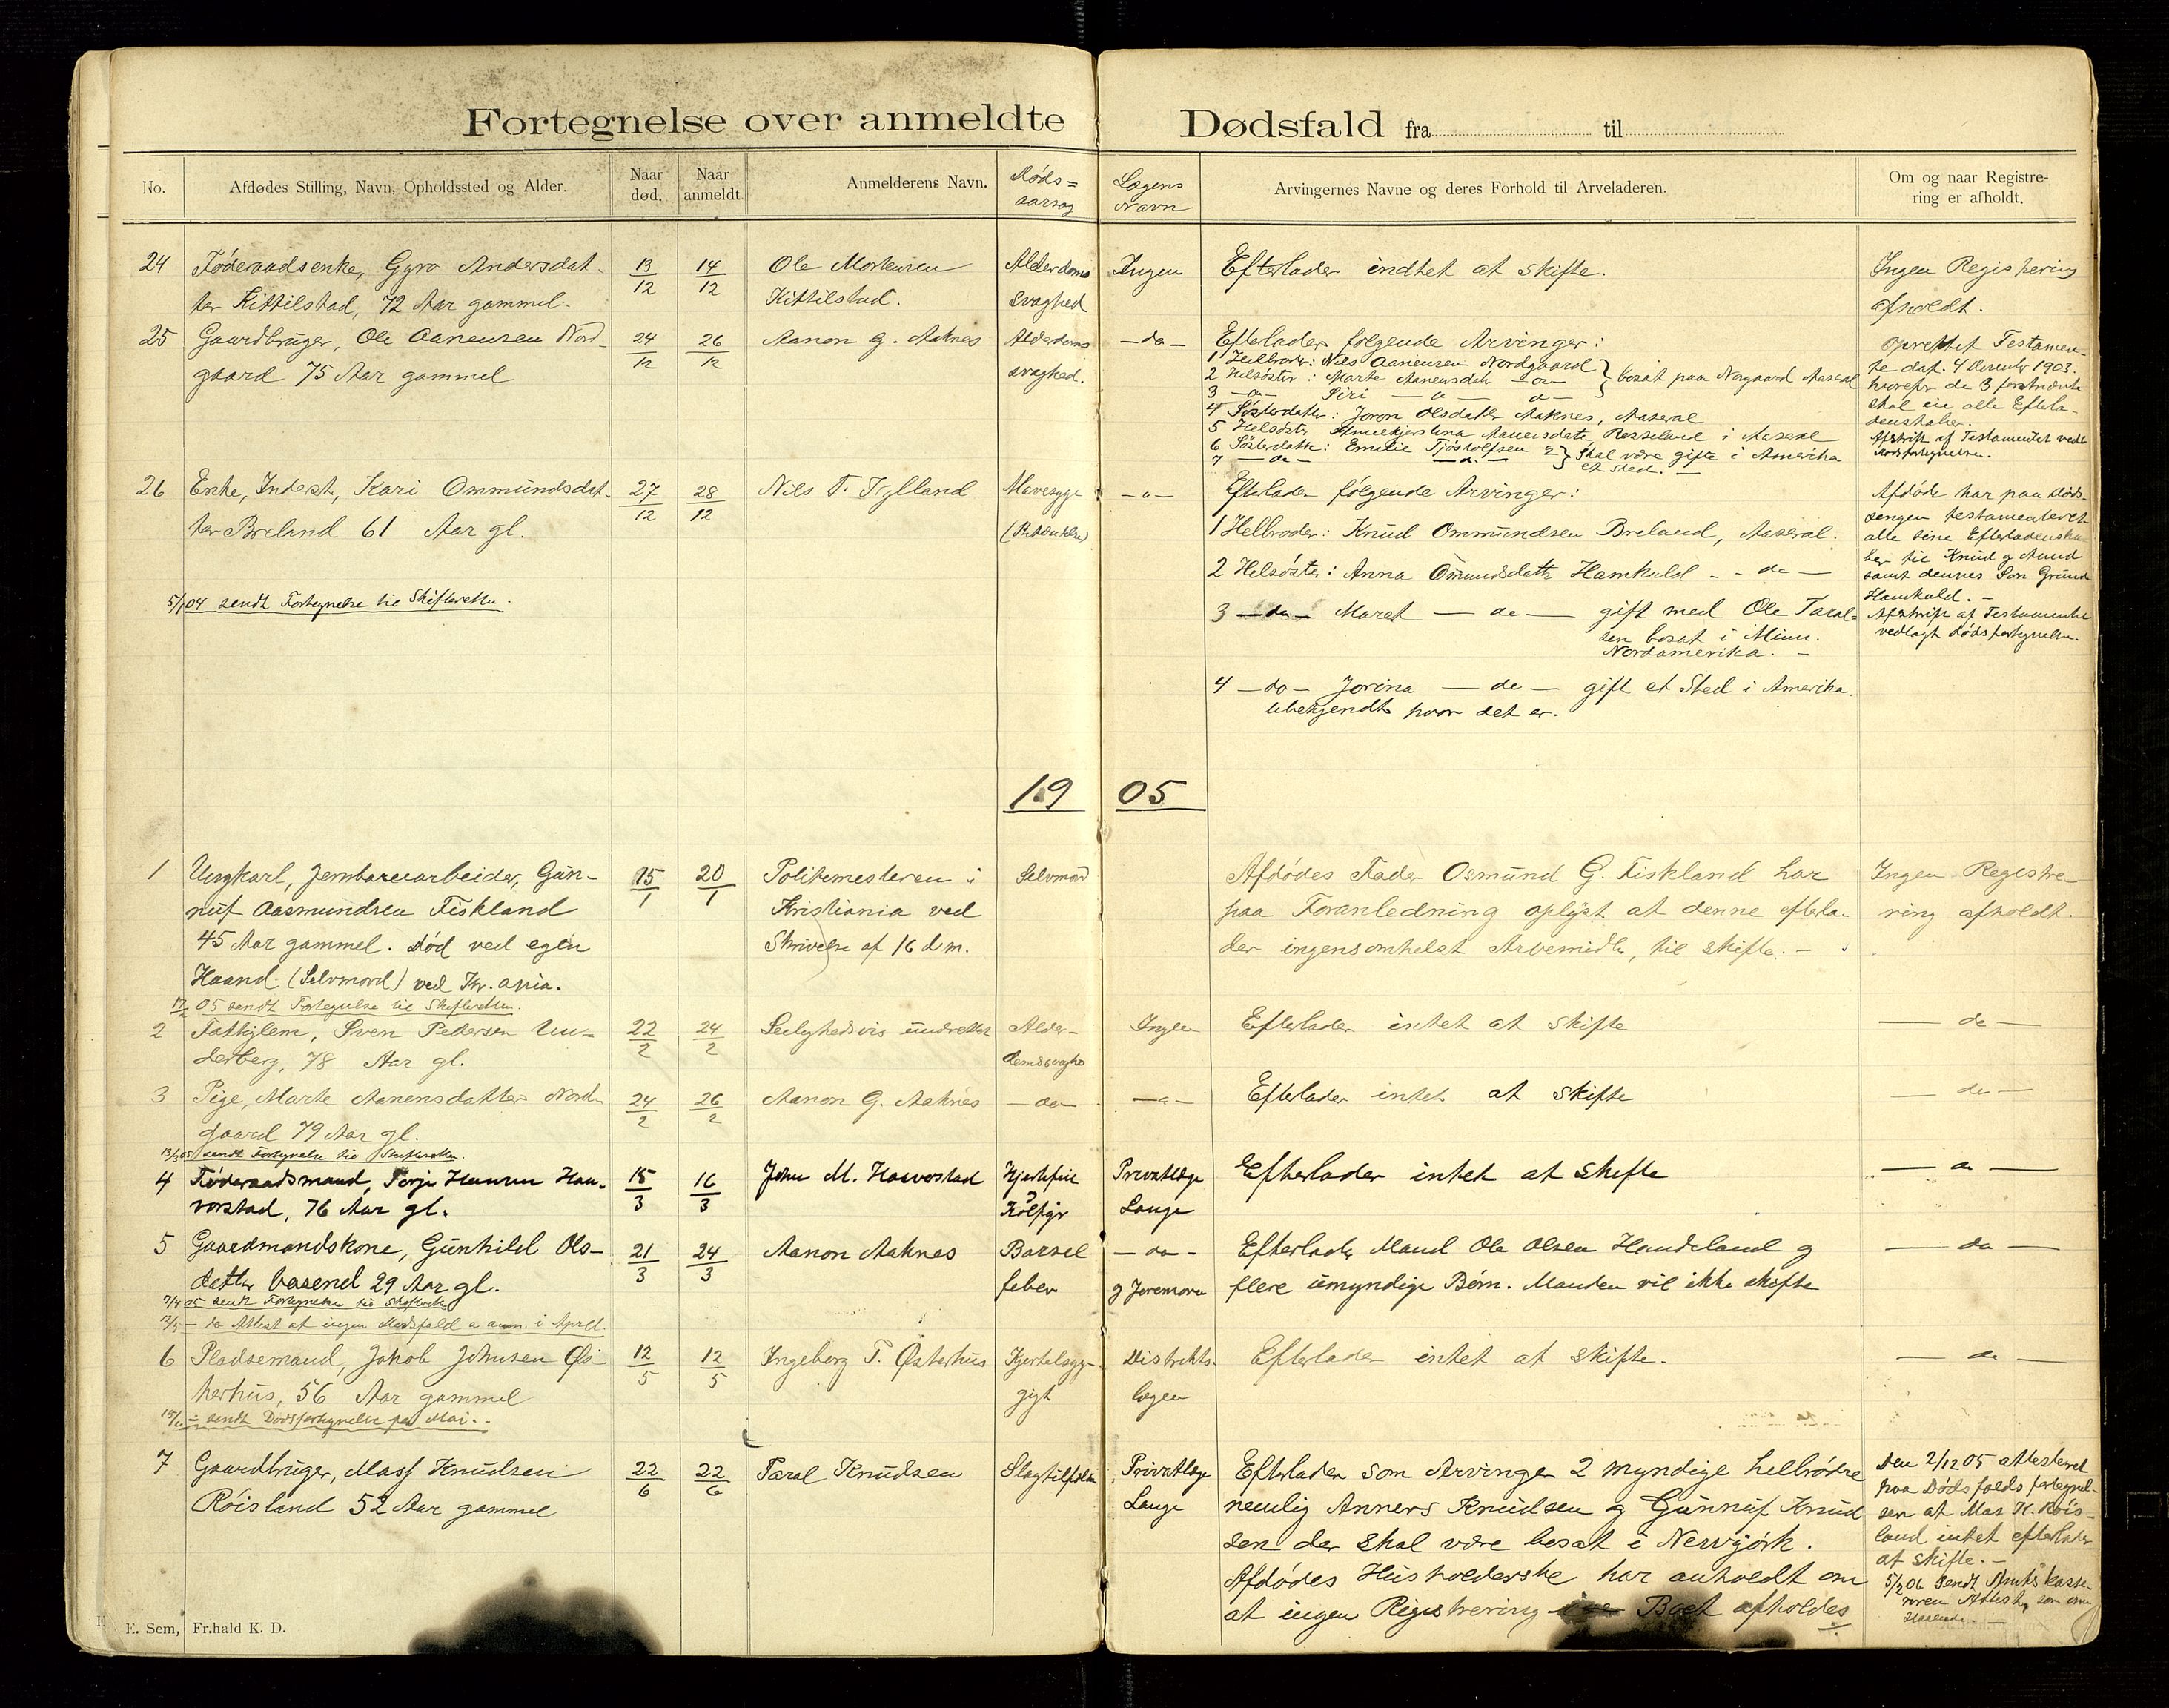 Fortegnelse over anmeldte Dødsfald fra til
No.
Afdødes Stilling, Navn, Opholdssted og Alder.
Naar død.
Naar anmeldt
Anmelderens Navn.
Døds=
aarsag
Lægens
Navn
Arvingernes Navne og deres Forhold til Arveladeren.
Om og naar Registre-
ring er afholdt.
24 Føderaadsenke, Gyro Andersdat-
ter Kittilstad, 72 Aar gammel.
13/12
14/12
Ole Mortensen
Kittilstad.
Alderdoms
svaghed
Ingen
Efterlader indtet at skifte.
Ingen Registrering
afholdt.
25 Gaardbruger, Ole Aanensen Nord-
gaard 75 Aar gammel
24/12
26/12
Aanon G. Aaknes
Alderdoms
svaghed.
— do —
Efterlader følgende Arvinger:
1 Helbroder: Nils Aanensen Nordgaard
2 Helsøster: Marte Aanensdatr — o — } bosat paa Norgaard Aaseral
3 — o — Siri — o — o —
4 Søsterdatter: Joron Olsdatter Aaknes, Aaseral
5 Helsøster Aanensdatter, Rosseland i Aaseral
6 Søsterdatter: Emilie Tjøstolfsen 2 } skal være gifte i Amerika
7 — do — — d. — et sted. —
oprettet Testamen-
te dat. 4 December 1903.
hvorefter de 3 førstnævnte
skal eie alle Efterla-
denskaber.
Afskrift af Testamentet vedl
Dødsfortegnelsen.
26 Enke, Inderst, Kari Ommundsdat-
ter Breland 61 Aar gl.
27/12
28/12
Nils T. Tylland
Mavesyge
— „ —
Efterlader følgende Arvinger:
1 Helbroder: Knud Ommundsen Breland, Aaseral.
2 Helsøster: Anna Omundsdatter Hamkald - - do —
3 — do — Maret — do — gift med Ole Taral=
sen bosat i Minn.
Nordamerika. —
4 — do — Jorina — do — gift et Sted i Amerika.
Ubekjendt hvor det er.
Afdøde har paa døds-
sengen testamenteret
alle sine Efterladenska-
ber til Knud og Aanund
samt dennes Søn
Hamkald. —
Afskrift af Testamentet
vedlagt dødsfortegnelsen.
5/1 04 sendt Fortegnelse til Skifteretten.
19 05
1 Ungkarl, Jernbanearbeider, Gun-
nuf Aasmundsen Fiskland
45 Aar gammel. Død ved egen
Haand (Selvmord) ved Kr.ania.
15/1
20/1
Politimesteren i
Kristiania ved
Skrivelse af 16 d m.
Selvmord
Afdødes Fader Osmund G. Fiskland har
paa Foranledning oplyst at denne efterla-
der ingensomhelst Arvemidler, til skifte. —
Ingen Registre-
ring afholdt.
17/2 05 sendt Fortegnelse til Skifteretten.
2 Fattiglem, Sven Pedersen Un-
derberg, 78 Aar gl.
22/2
24/2
Leilighedsvis underrettet
Alder-
domssvaghd
Ingen
Efterlader intet at skifte
— do —
3 Pige, Marte Aanensdatter Nord-
gaard 79 Aar gl.
24/2
26/2
Aanon G. Aaknes
— do —
— „ —
Efterlader intet at skifte
— do —
13/3 05 sendt Fortegnelse til Skifteretten.
4 Føderaadsmand, Terje Hansen Hau-
vorstad, 76 Aar gl.
15/3
16/3
John M. Hauvorstad
Hjertefeil
Privatlæge
Lange
Efterlader intet at skifte
— do —
5 Gaardmandskone, Gunhild Ols-
datter Aasend 29 Aar gl.
21/3
24/3
Aanon Aaknes
Barsel
feber
— do —
g Joremoren
Efterlader Mand Ole Olsen Haudeland g
flere umyndige Børn. Manden vil ikke skifte
— do —
7/4 05 sendt Fortegnelse til Skifteretten
12/5 — do Attest at ingen Dødsfald a anm. i April.
6 Pladsemand, Jakob Johnsen Øs-
terhus, 56 Aar gammel
12/5
12/5
Ingeborg T. Østerhus
gigt
Distrikts-
lægen
Efterlader intet at skifte.
— do —
15/6 — sendt Dødsfortegnelse for Mai. -
7 Gaardbruger, Mass Knudsen
Røisland 52 Aar gammel
22/6
22/6
Taral Knudsen
Slagtilfælde
Privatlæge
Lange
Efterlader som Arvinger 2 myndige helbrødre
nemlig Anners Knudsen og Gunnuf Knud
sen der skal være bosat i Newyørk.
Afdødes Husholderske har anholdt om
at ingen Registrering Boet afholdes
Den 2/12 05 attesteret
paa Dødsfalds fortegnel-
sen at Mas K. Røis-
land intet efterlader
at skifte. —
5/2 06 Sendt Amtskasse-
reren Attest, som om
E. Sem, Fr.hald K. D.